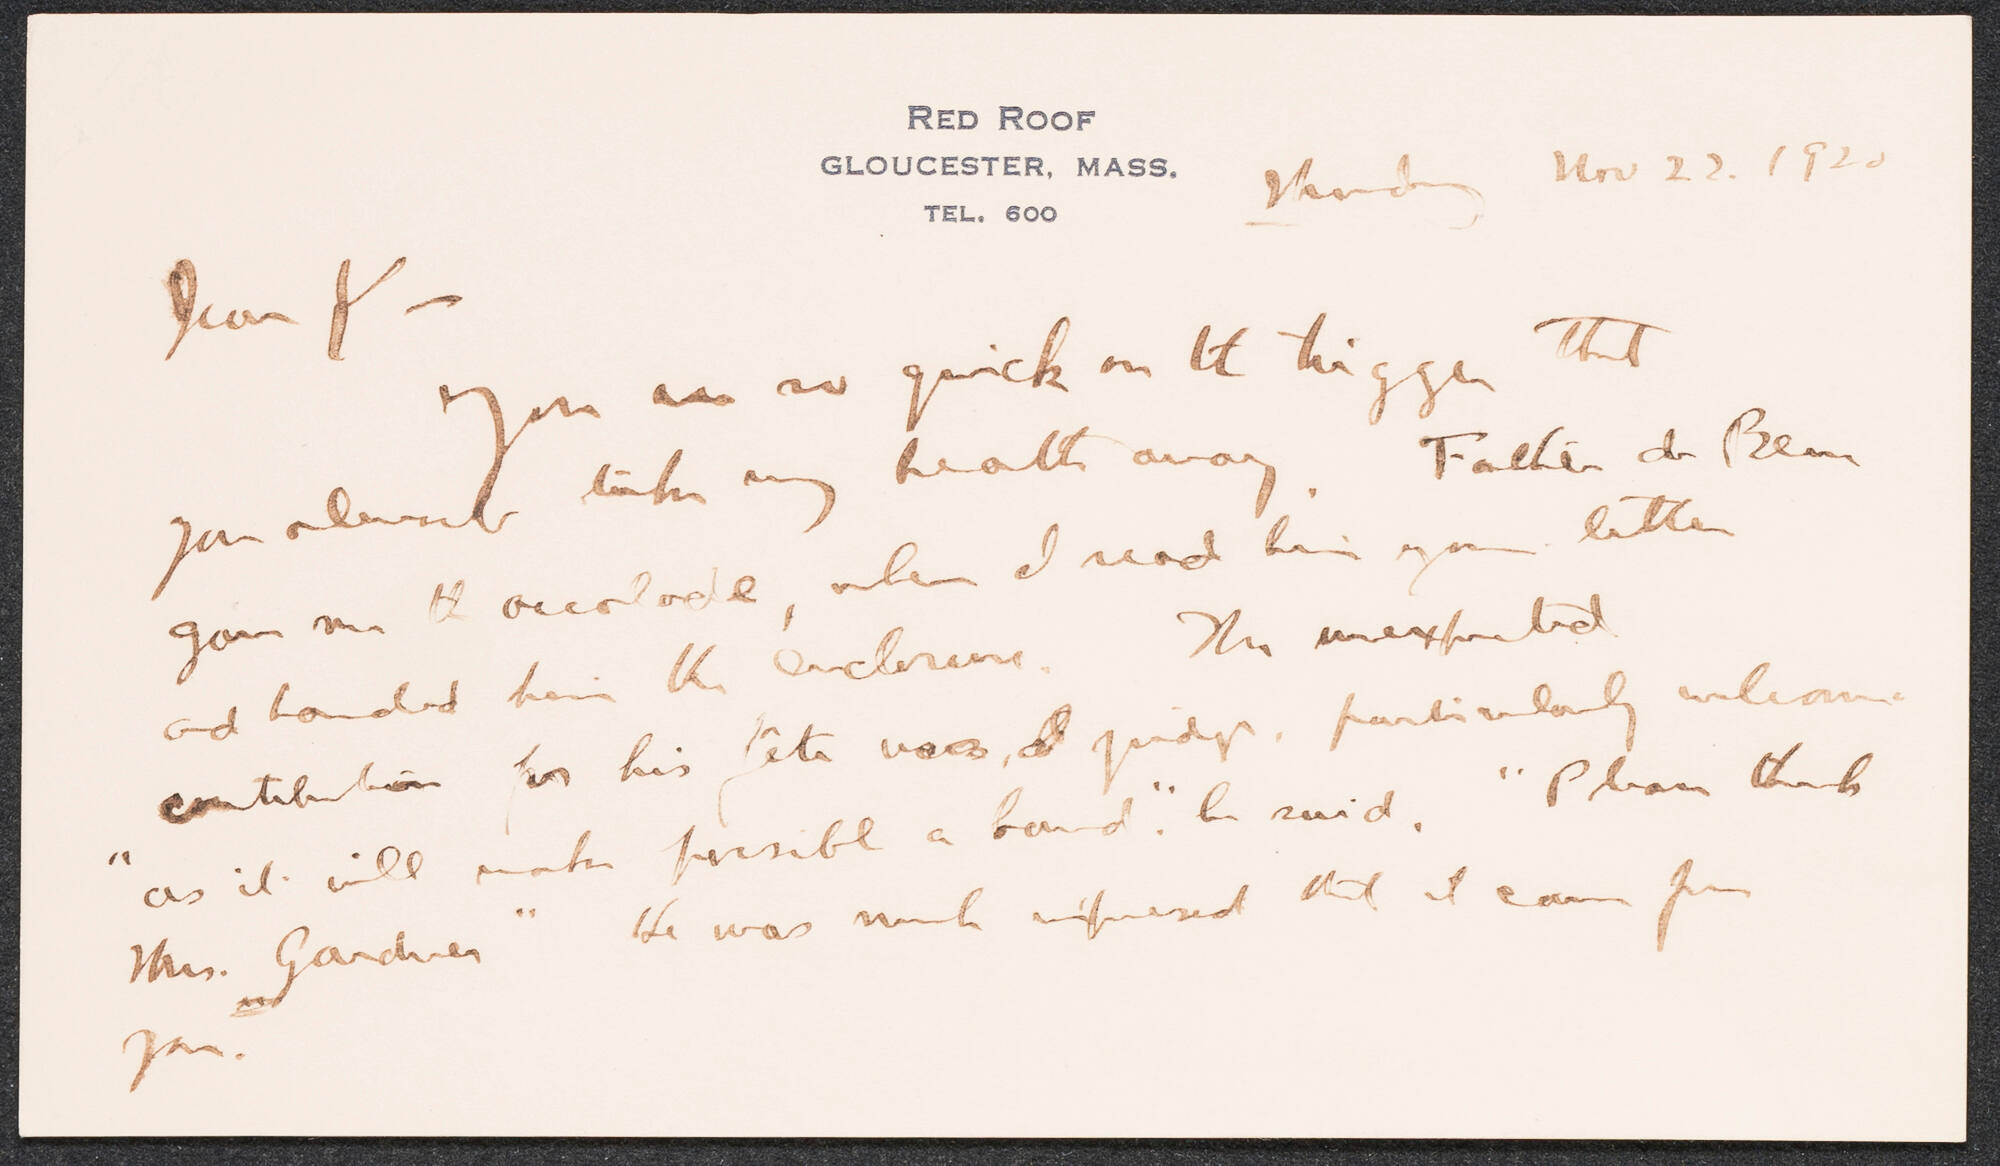 RED ROOF
GLOUCESTER, MASS.
TEL. 600
Monday Nov 22. 1920
Dear Y —
You are so quick on the trigger that
you almost take my breath away. Father de Bem
gave me the accolade, when I read him your letter
and handed him the enclosure. The unexpected
contribution for his fete was, I judge, particularly welcome
"as it will make possible a band". he said. "Please thank
Mrs. Gardner" He was much impressed that it came from
you.